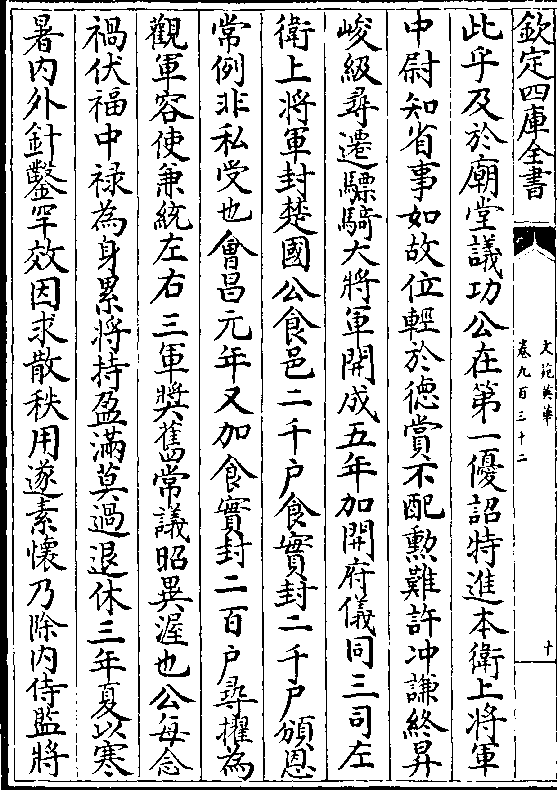 欽定四庫全書
文苑英華
卷九百三十二
十
此乎及於廟堂議功公在第一優詔特進本衛上將軍
中尉知省事如故位輕於德賞不配勲難許沖謙終昇
峻級尋遷驃騎大將軍開成五年加開府儀同三司左
衛上將軍封楚國公食邑二千户食實封二千户頒恩
常例非私受也會昌元年又加食實封二百户尋擢為
觀軍容使兼統左右三軍奬舊常議昭異渥也公每念
禍伏福中禄為身累將持盈滿莫過退休三年夏以寒
暑内外針鑿罕效因求散秩用遂素懷乃除内侍監將